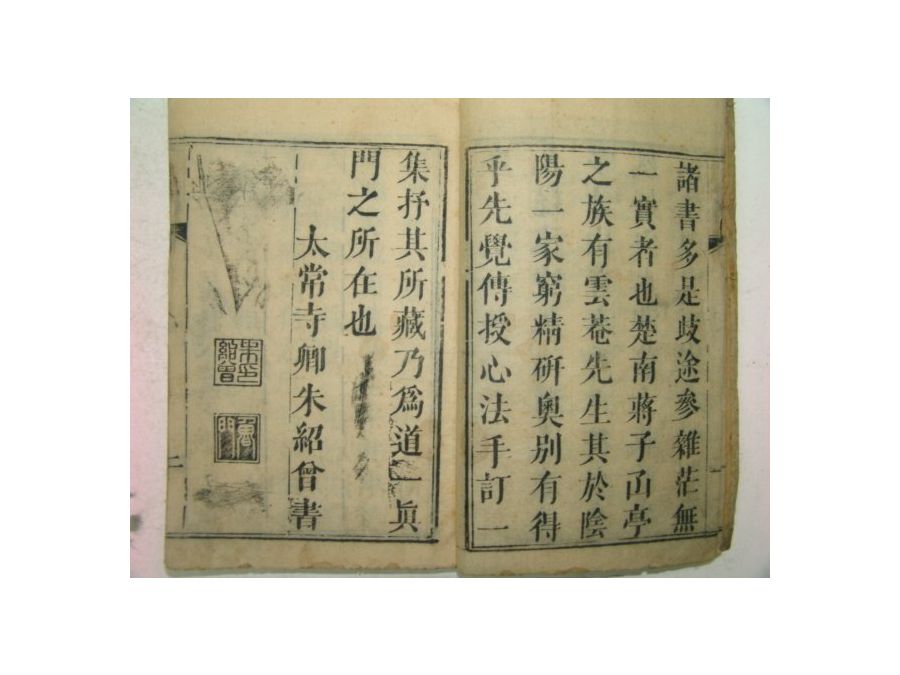 諸書多是歧途參雜茫無
一實者也楚南蔣子凾亭
之族有雲菴先生其於陰
陽一家窮精研奧別有得
乎先覺傳授心法手訂一
集抒其所藏乃爲道一眞
門之所在也
太常寺卿朱紹曾書
朱印紹曾